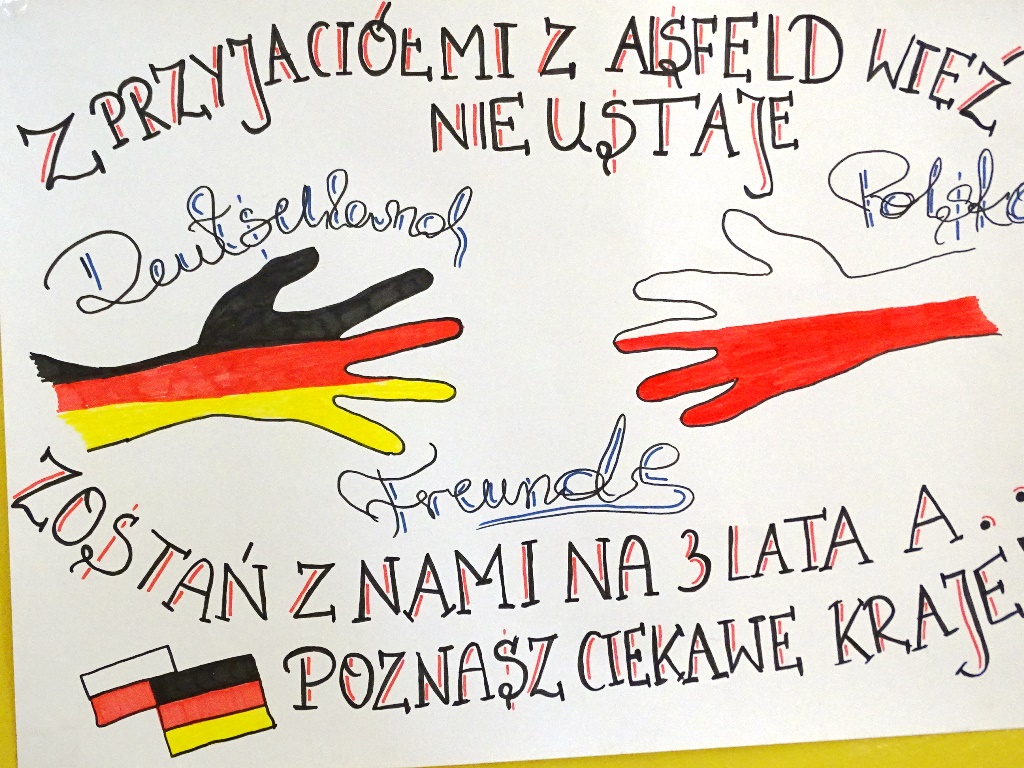 Z PRZYJACIÓŁMI Z ALSFELD WIĘŹ
NIE USTAJE
Deutschland
Polska
Freunde
ZOSTAŃ Z NAMI NA 3 LATA A..
POZNASZ CIEKAWE KRAJE